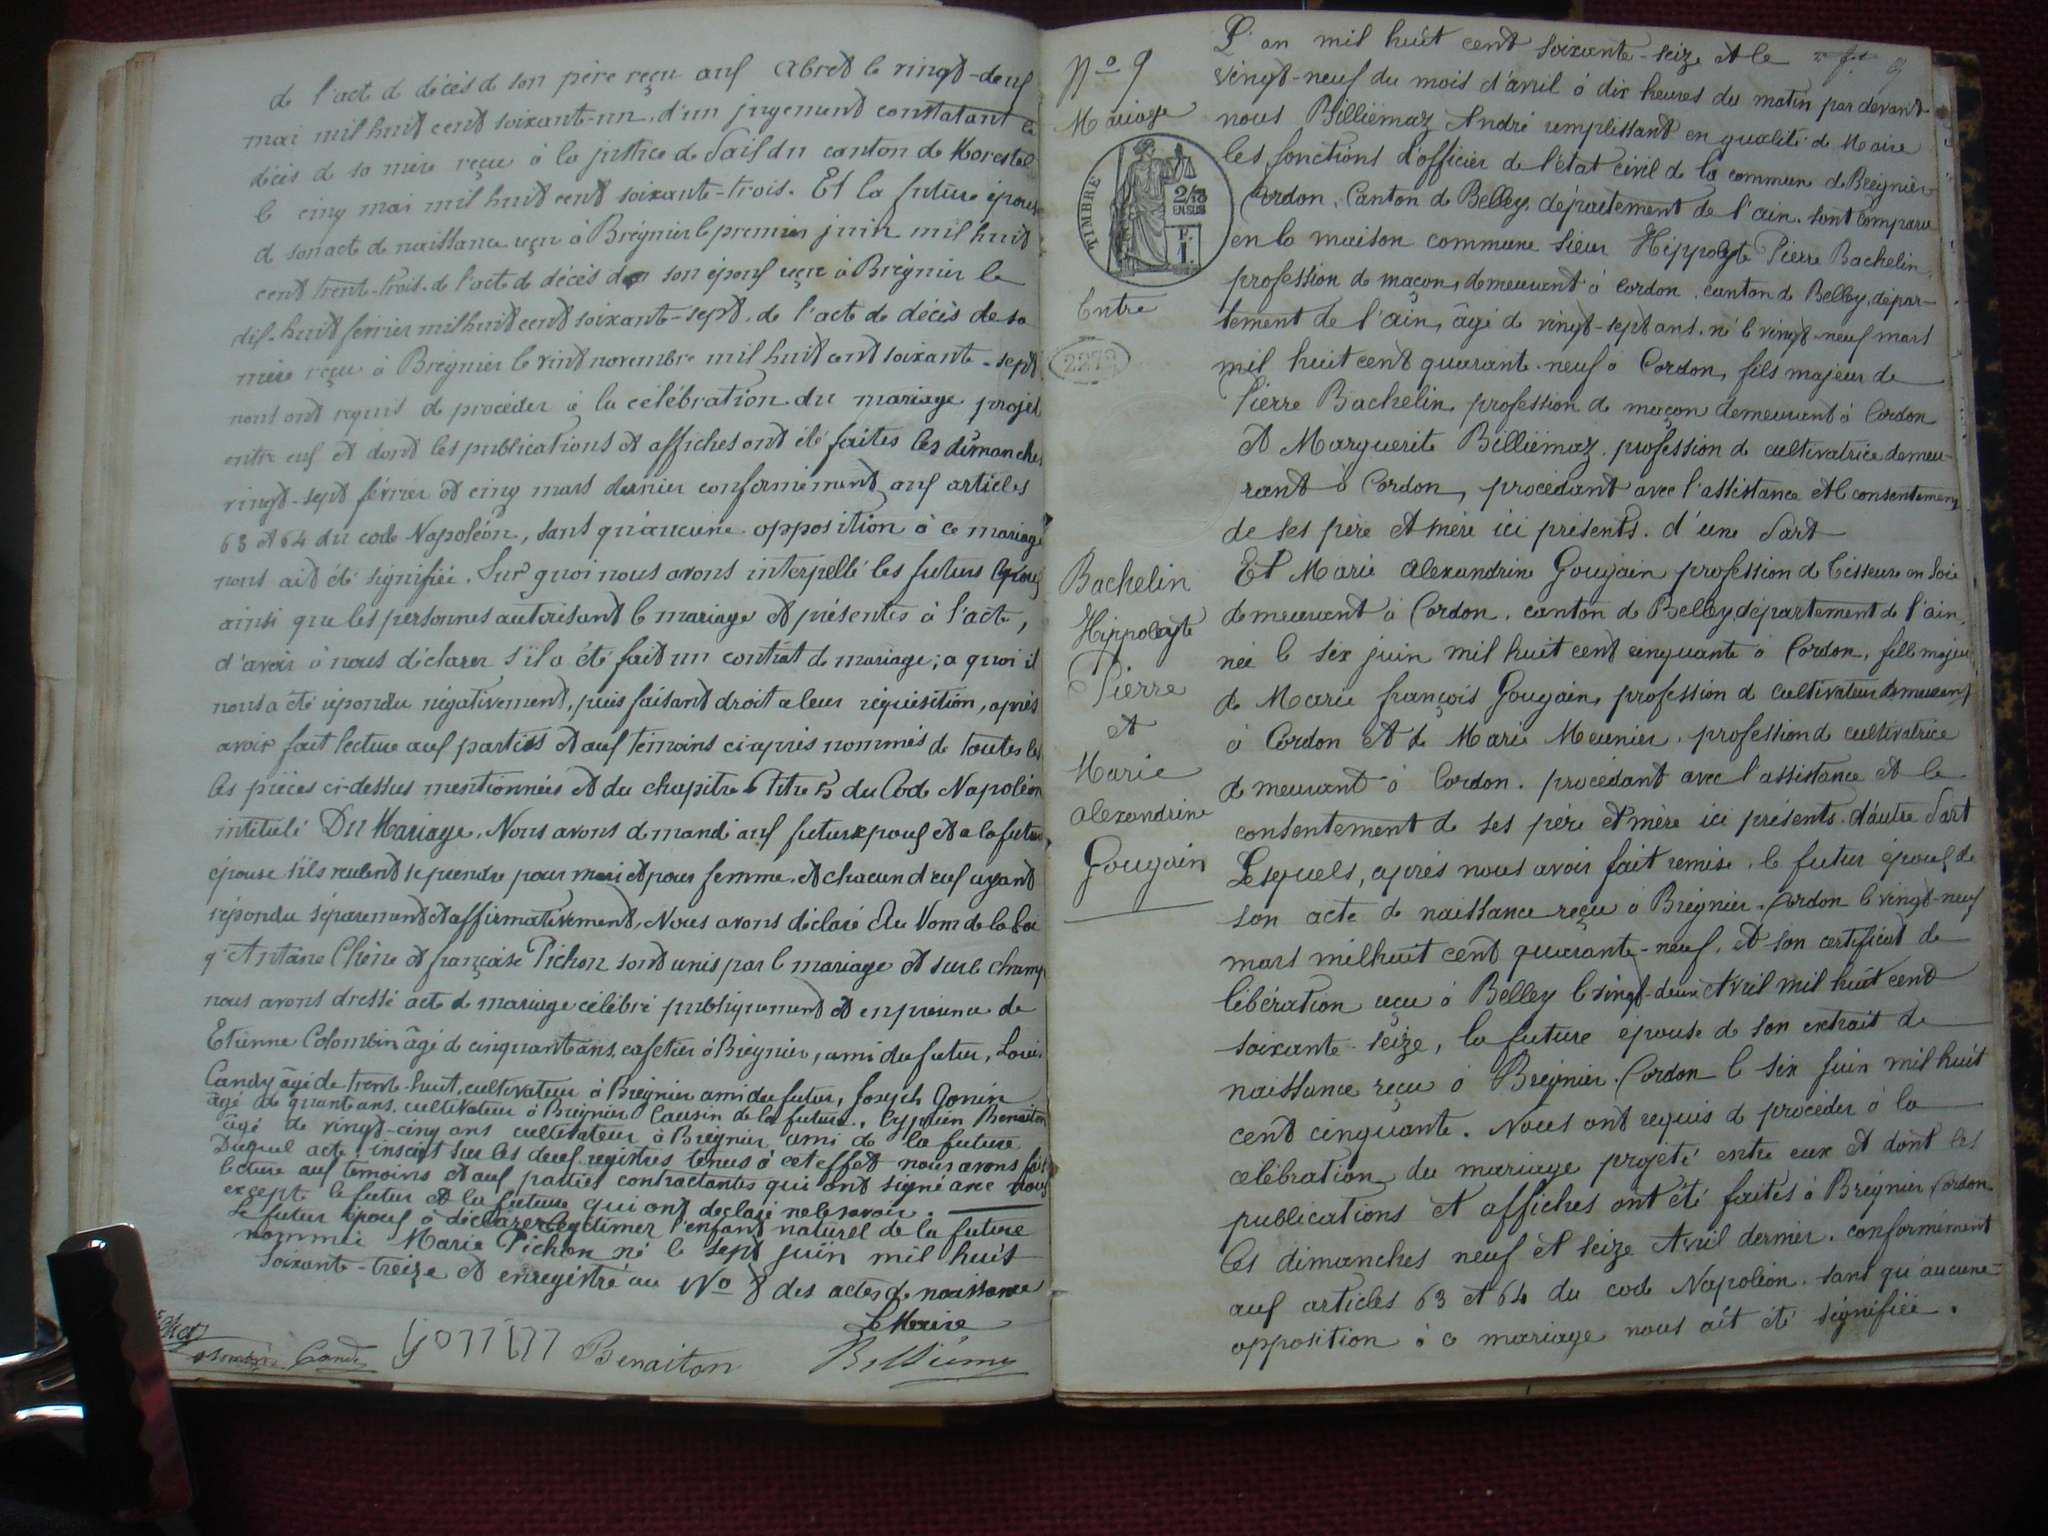 de l'acte de décès de son père reçu aux Abret le vingt-deux
mai mil huit cent soixante-un, d'un jugement constatant le
décès de sa mère reçu à la justice de Paix du canton de Morestel
le cinq mai mil huit cent soixante-trois. Et la future épouse
de son acte de naissance reçu à Brégnier le premier juin mil huit
cent trente-trois. de l'acte de décès de son époux reçu à Brégnier le
dix-huit février mil huit cent soixante-sept. de l'acte de décès de sa
mère reçu à Brégnier le vint novembre mil huit cent soixante-sept
nous ont requis de procéder à la célébration du mariage projet
entre eux et dont les publications et affiches ont été faites les dimanches
vingt-sept février et cinq mars dernier conformément aux articles
63 et 64 du code Napoléon, sans qu'aucune opposition à ce mariage
nous ait été signifiée. Sur quoi nous avons interpellé les futurs époux
ainsi que les personnes autorisant le mariage et présentes à l'acte,
d'avoir à nous déclarer s'il a été fait un contrat de mariage; a quoi il
nous a été répondu négativement, puis faisant droit a leur réquisition, après
avoir fait lecture aux parties et aux témoins ci-après nommés de toutes les
les pièces ci-dessus mentionnées et du chapitre Titre 5 du Code Napoléon
intitulé Du Mariage. Nous avons demandé aux futur époux et a la future
épouse s'ils veulent se prendre pour mari et pour femme. et chacun d'eux ayant
répondu séparement et affirmativement, Nous avons déclaré Au Nom de la Loi
q' Antoine Chêne et françoise Pichon sont unis par le mariage et sur le champ
nous avons dressé acte de mariage célébré publiquement et en présence de
Etienne Colombin âgé de cinquante ans, cafetier à Brégnier, ami du futur, Louis
Candy âgé de trente-huit, cultivateur à Brégnier ami du futur, Joseph Gonin
âgé de quante ans, cultivateur à Brégnier Causin de la future, Cyprien Benaiton
âgé de vingt-cinq ans cultivateur à Brégnier ami de la future
Duquel acte, inscrit sur les deux registres tenus à cet effet nous avons fait
lecture aux temoins et aux parties contractantes qui ont signé avec nous
excepté le futur et la future qui ont déclaré ne le savoir.
Le futur époux à déclarer légitimer l'enfant naturel de la future
nommée Marie Pichon né le sept juin mil huit
soixante-treize et enregistré au No 8 des actes de naissance
Le Maire
Candy Gonin Benaiton Billiémaz
No 9
Mariage
TIMBRE
2/10
EN SUS
F.
1.
Entre
2273
Bachelin
Hippolyte
Pierre
et
Marie
Alexandrine
Gougain
L'an mil huit cent soixante-seize et le
vingt-neuf du mois d'avril à dix heures du matin par devant
nous Billiémaz André remplissant en qualité de Maire
les fonctions d'officier de l'état civil de la commune de Brégnier
Cordon, Canton de Belley, département de l'ain. sont comparu
en la maison commune sieur Hippolyte Pierre Bachelin,
profession de maçon, demeurant à Cordon, canton de Belley, dépar-
tement de l'ain, âgé de vingt-sept ans, né le vingt-neuf mars
mil huit cent quarante-neuf à Cordon, fils majeur de
Pierre Bachelin profession de maçon demeurant à Cordon
et Marguerite Billiémaz, profession de cultivatrice demeu-
rant à Cordon, procédant avec l'assistance et le consentement
de ses père et mère ici présents. d'une Part
Et Marie Alexandrine Gougain profession de Tisseuse en Soie
demeurant à Cordon, canton de Belley, département de l'ain,
née le six juin mil huit cent cinquante à Cordon, fille majeu
de Marie françois Gougain, profession de cultivateur demeurant
à Cordon et de Marie Meunier, profession de cultivatrice
demeurant à Cordon, procédant avec l'assistance et le
consentement de ses père et mère ici présents. d'autre Part
Lesquels, après nous avoir fait remise, le futur époux de
son acte de naissance reçu à Brégnier-Cordon le vingt-neuf
mars mil huit cent quarante-neuf, et son certificat de
libération reçu à Belley le vingt-deux Avril mil huit cent
soixante-seize, la future épouse de son extrait de
naissance reçu à Brégnier-Cordon le six Juin mil huit
cent cinquante. Nous ont requis de procéder à la
célébration du mariage projeté entre eux et dont les
publications et affiches ont été faites à Brégnier Cordon
les dimanches neuf et seize Avril dernier, conformément
aux articles 63 et 64 du code Napoléon. sans qu'aucune
opposition à ce mariage nous ait été signifiée.